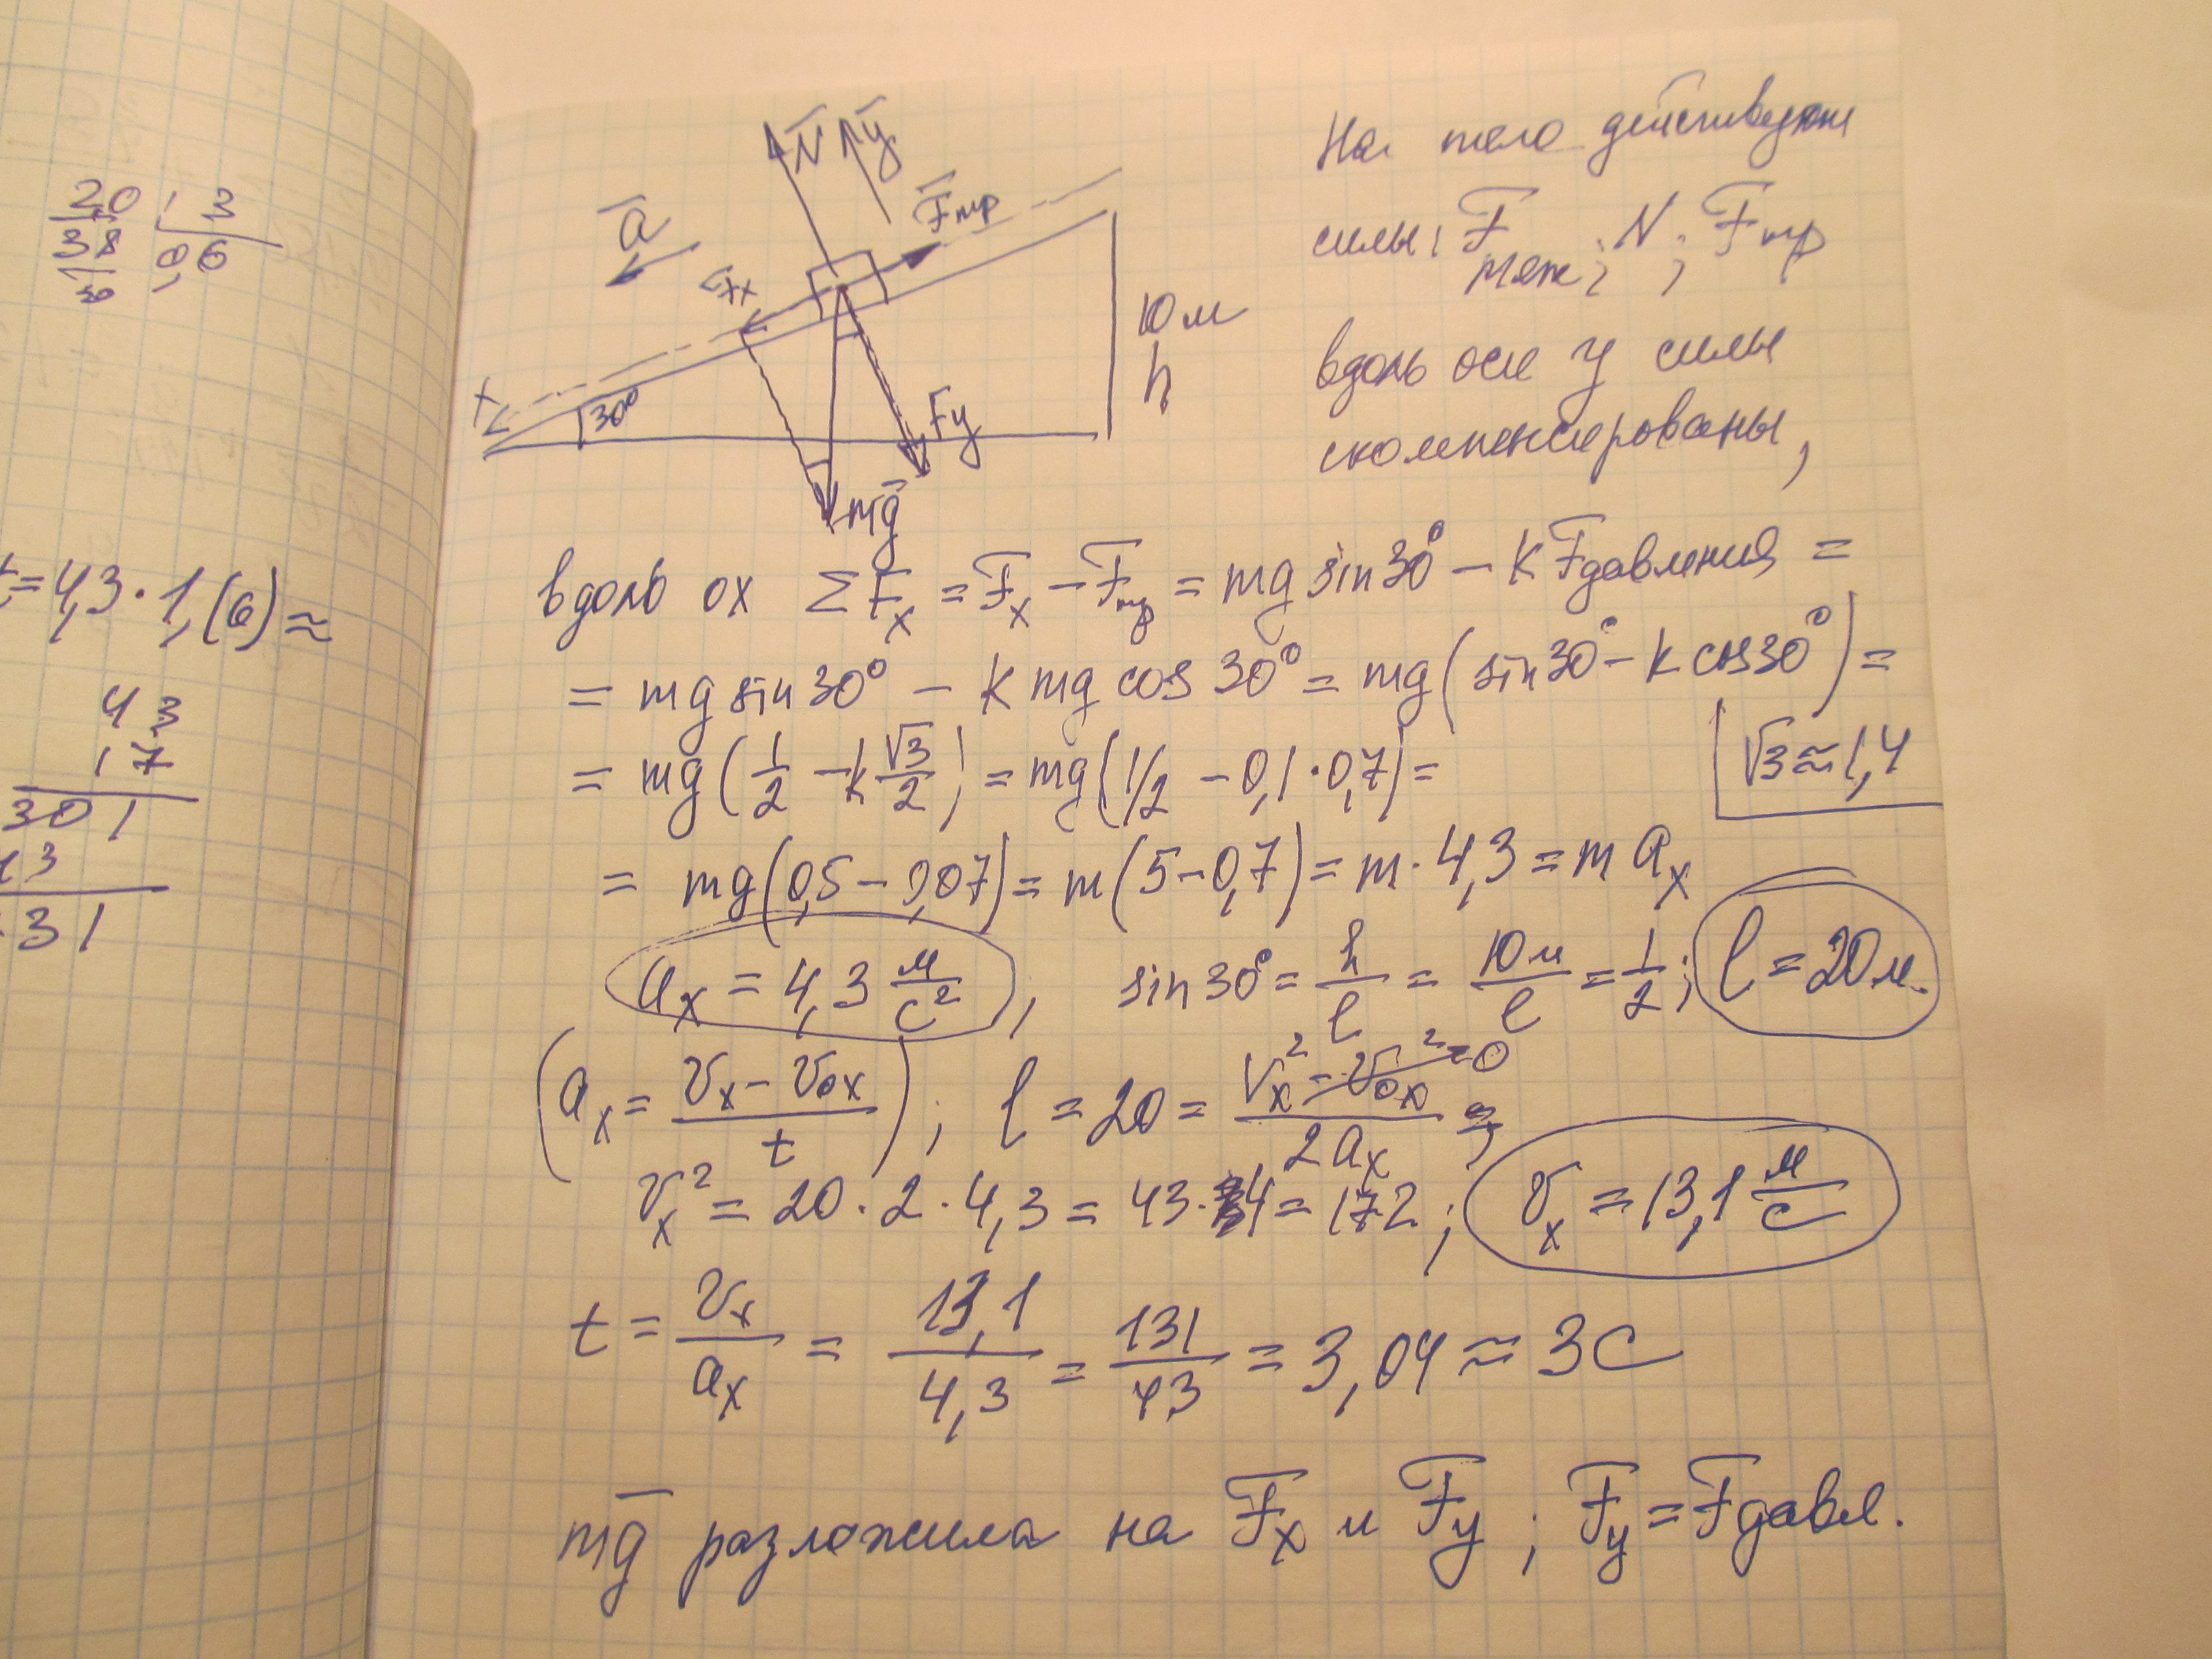 20 3
18 0,6
t=4,3·1,(6)≈
43
17
301
43
31
N̄ ȳ
F̄тр
ā
Fx
10 м
h
x
30°
Fy
mḡ
На тело действуют
силы: F̄тяж; N̄; F̄тр
вдоль оси y силы
скомпенсированы,
вдоль ox ΣFx = F̄x − F̄тр = mg sin30° − k F̄давления =
= mg sin30° − k mg cos 30° = mg(sin30° − k cos30°) =
= mg(1/2 − k √3/2) = mg(1/2 − 0,1·0,7) =
√3≈1,4
= mg(0,5 − 0,07) = m(5−0,7) = m·4,3 = m ax
ax = 4,3 м/с², sin30° = h/l = 10м/l = 1/2; l = 20м.
(ax = (vx − v0x)/t); l = 20 = (vx² − v0x²=0)/2ax ;
vx² = 20·2·4,3 = 43·4 = 172; vx = 13,1 м/с
t = vx/ax = 13,1/4,3 = 131/43 = 3,04 ≈ 3с
mḡ разложила на F̄x и F̄y; F̄y = F̄давл.